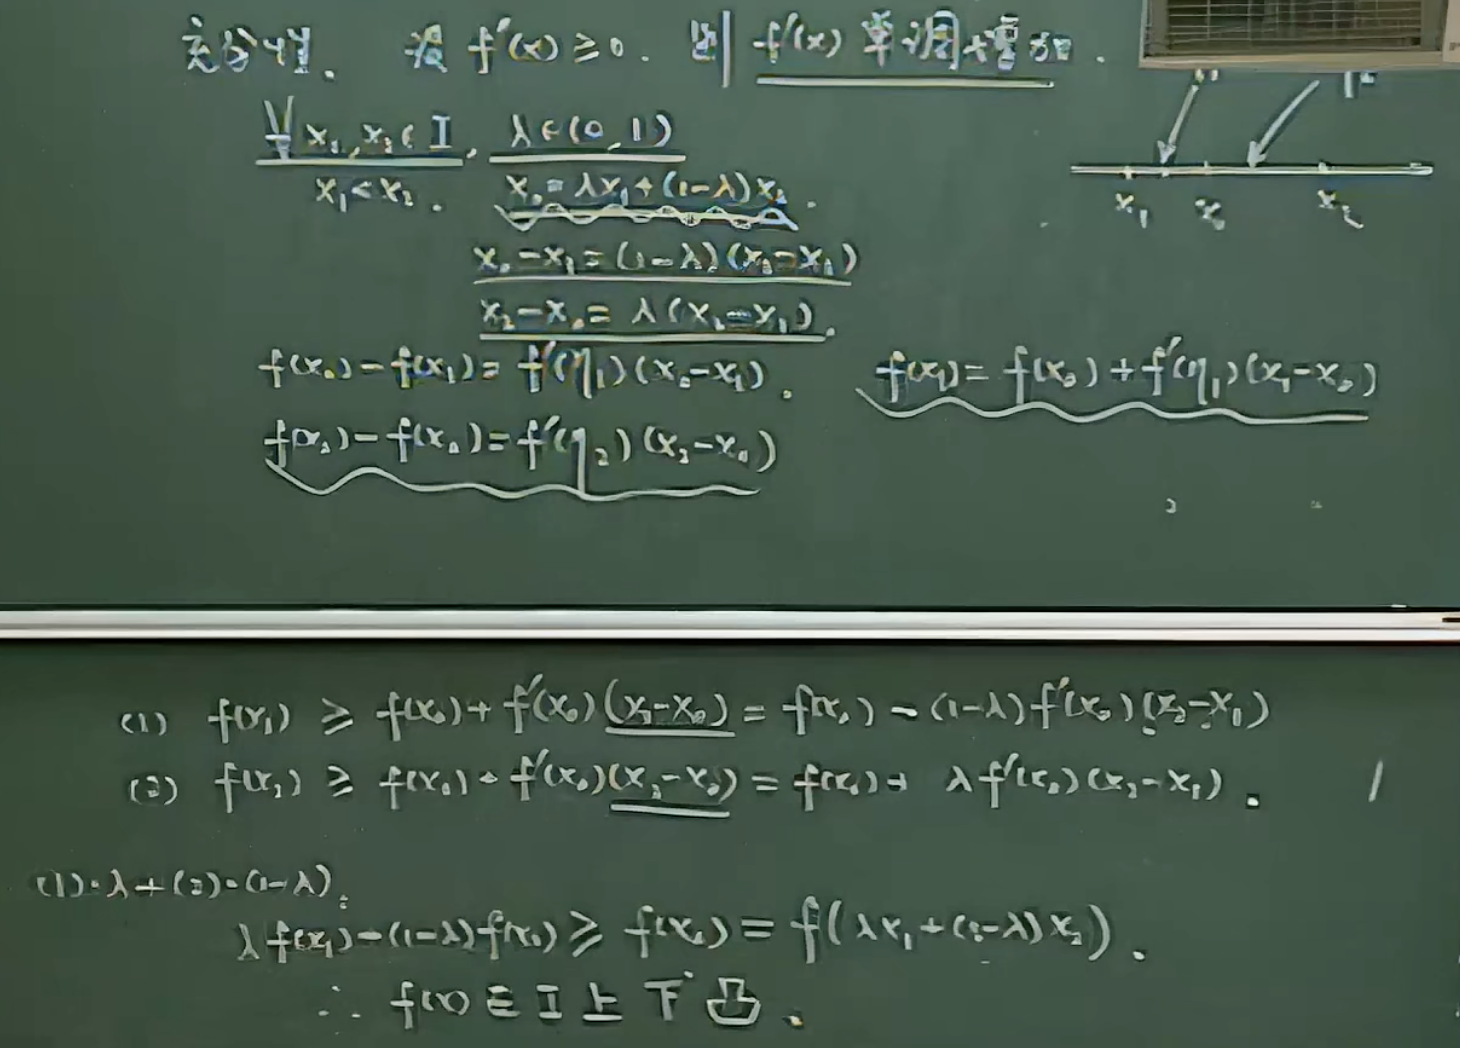 充分性. 设 f''(x) ≥ 0. 则 f'(x) 单调增加.
∀ x₁, x₂ ∈ I, λ ∈ (0, 1)
x₁ < x₂. x₀ = λx₁ + (1-λ)x₂.
x₁ x₀ x₂
x₀ - x₁ = (1-λ)(x₂-x₁)
x₂ - x₀ = λ(x₂-x₁).
f(x₀) - f(x₁) = f'(η₁)(x₀-x₁). f(x₁) = f(x₀) + f'(η₁)(x₁-x₀)
f(x₂) - f(x₀) = f'(η₂)(x₂-x₀)
(1) f(x₁) ≥ f(x₀) + f'(x₀)(x₁-x₀) = f(x₀) - (1-λ)f'(x₀)(x₂-x₁)
(2) f(x₂) ≥ f(x₀) + f'(x₀)(x₂-x₀) = f(x₀) + λf'(x₀)(x₂-x₁).
(1)·λ + (2)·(1-λ):
λf(x₁) + (1-λ)f(x₂) ≥ f(x₀) = f(λx₁ + (1-λ)x₂).
∴ f(x) 在 I 上 下凸.